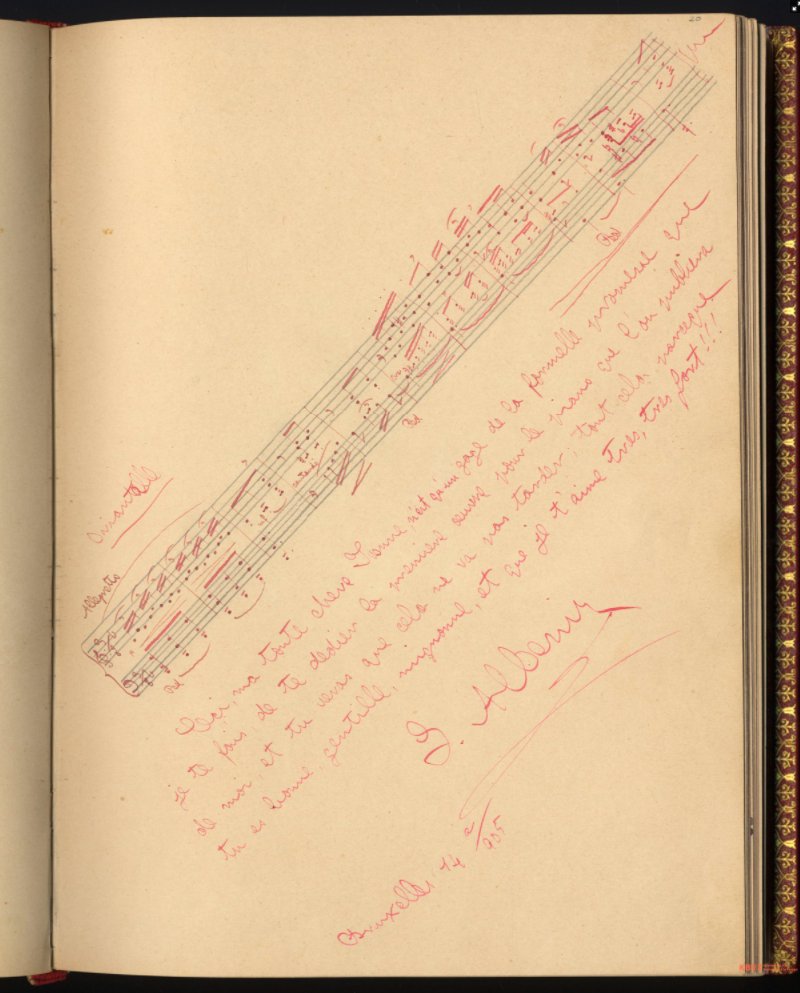 20
Allegretto
Ped
Ped
Ped
Ceci, ma toute chère Jeanne, n'est qu'un gage de la formelle promesse que
je te fais, de te dedier la première œuvre pour le piano que l'on publiera
de moi, et tu veras que cela ne va pas tarder, tout cela parceque
tu es bonne, gentille, mignonne, et que je t'aime tres, tres fort!!!
I. Albeniz
Bruxelles 14 905